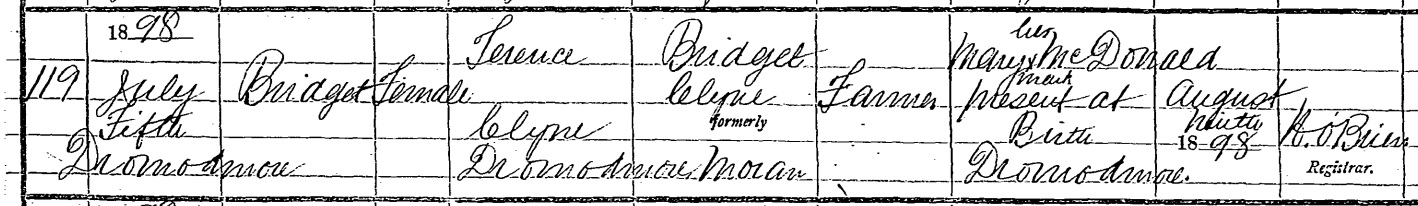 1898
her
Terence Bridget Mary X McDonald
mark
119 July Bridget Female Clyne Farmer present at August
Fifth Clyne formerly Birth Ninth
1898 H. O'Brien
Dromodmore Dromodmore Moran Dromodmore. Registrar.